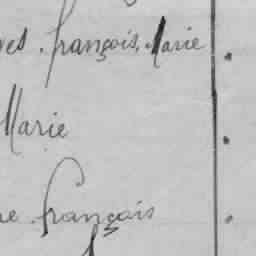 françois, Marie
Marie
françois